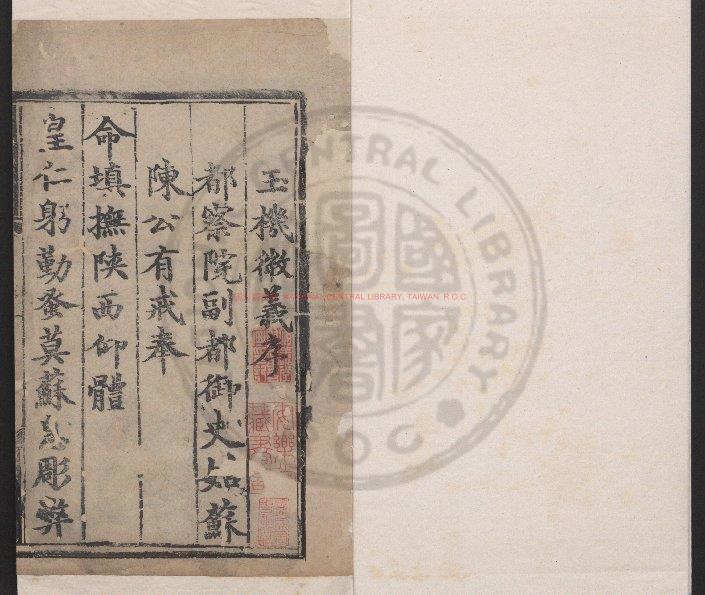 玉機微義序
都察院副都御史如蘇
陳公有戒奉
命填撫陝西仰體
皇仁躬勤蚤莫蘇彫弊
CENTRAL LIBRARY
NATIONAL CENTRAL LIBRARY, TAIWAN, R.O.C